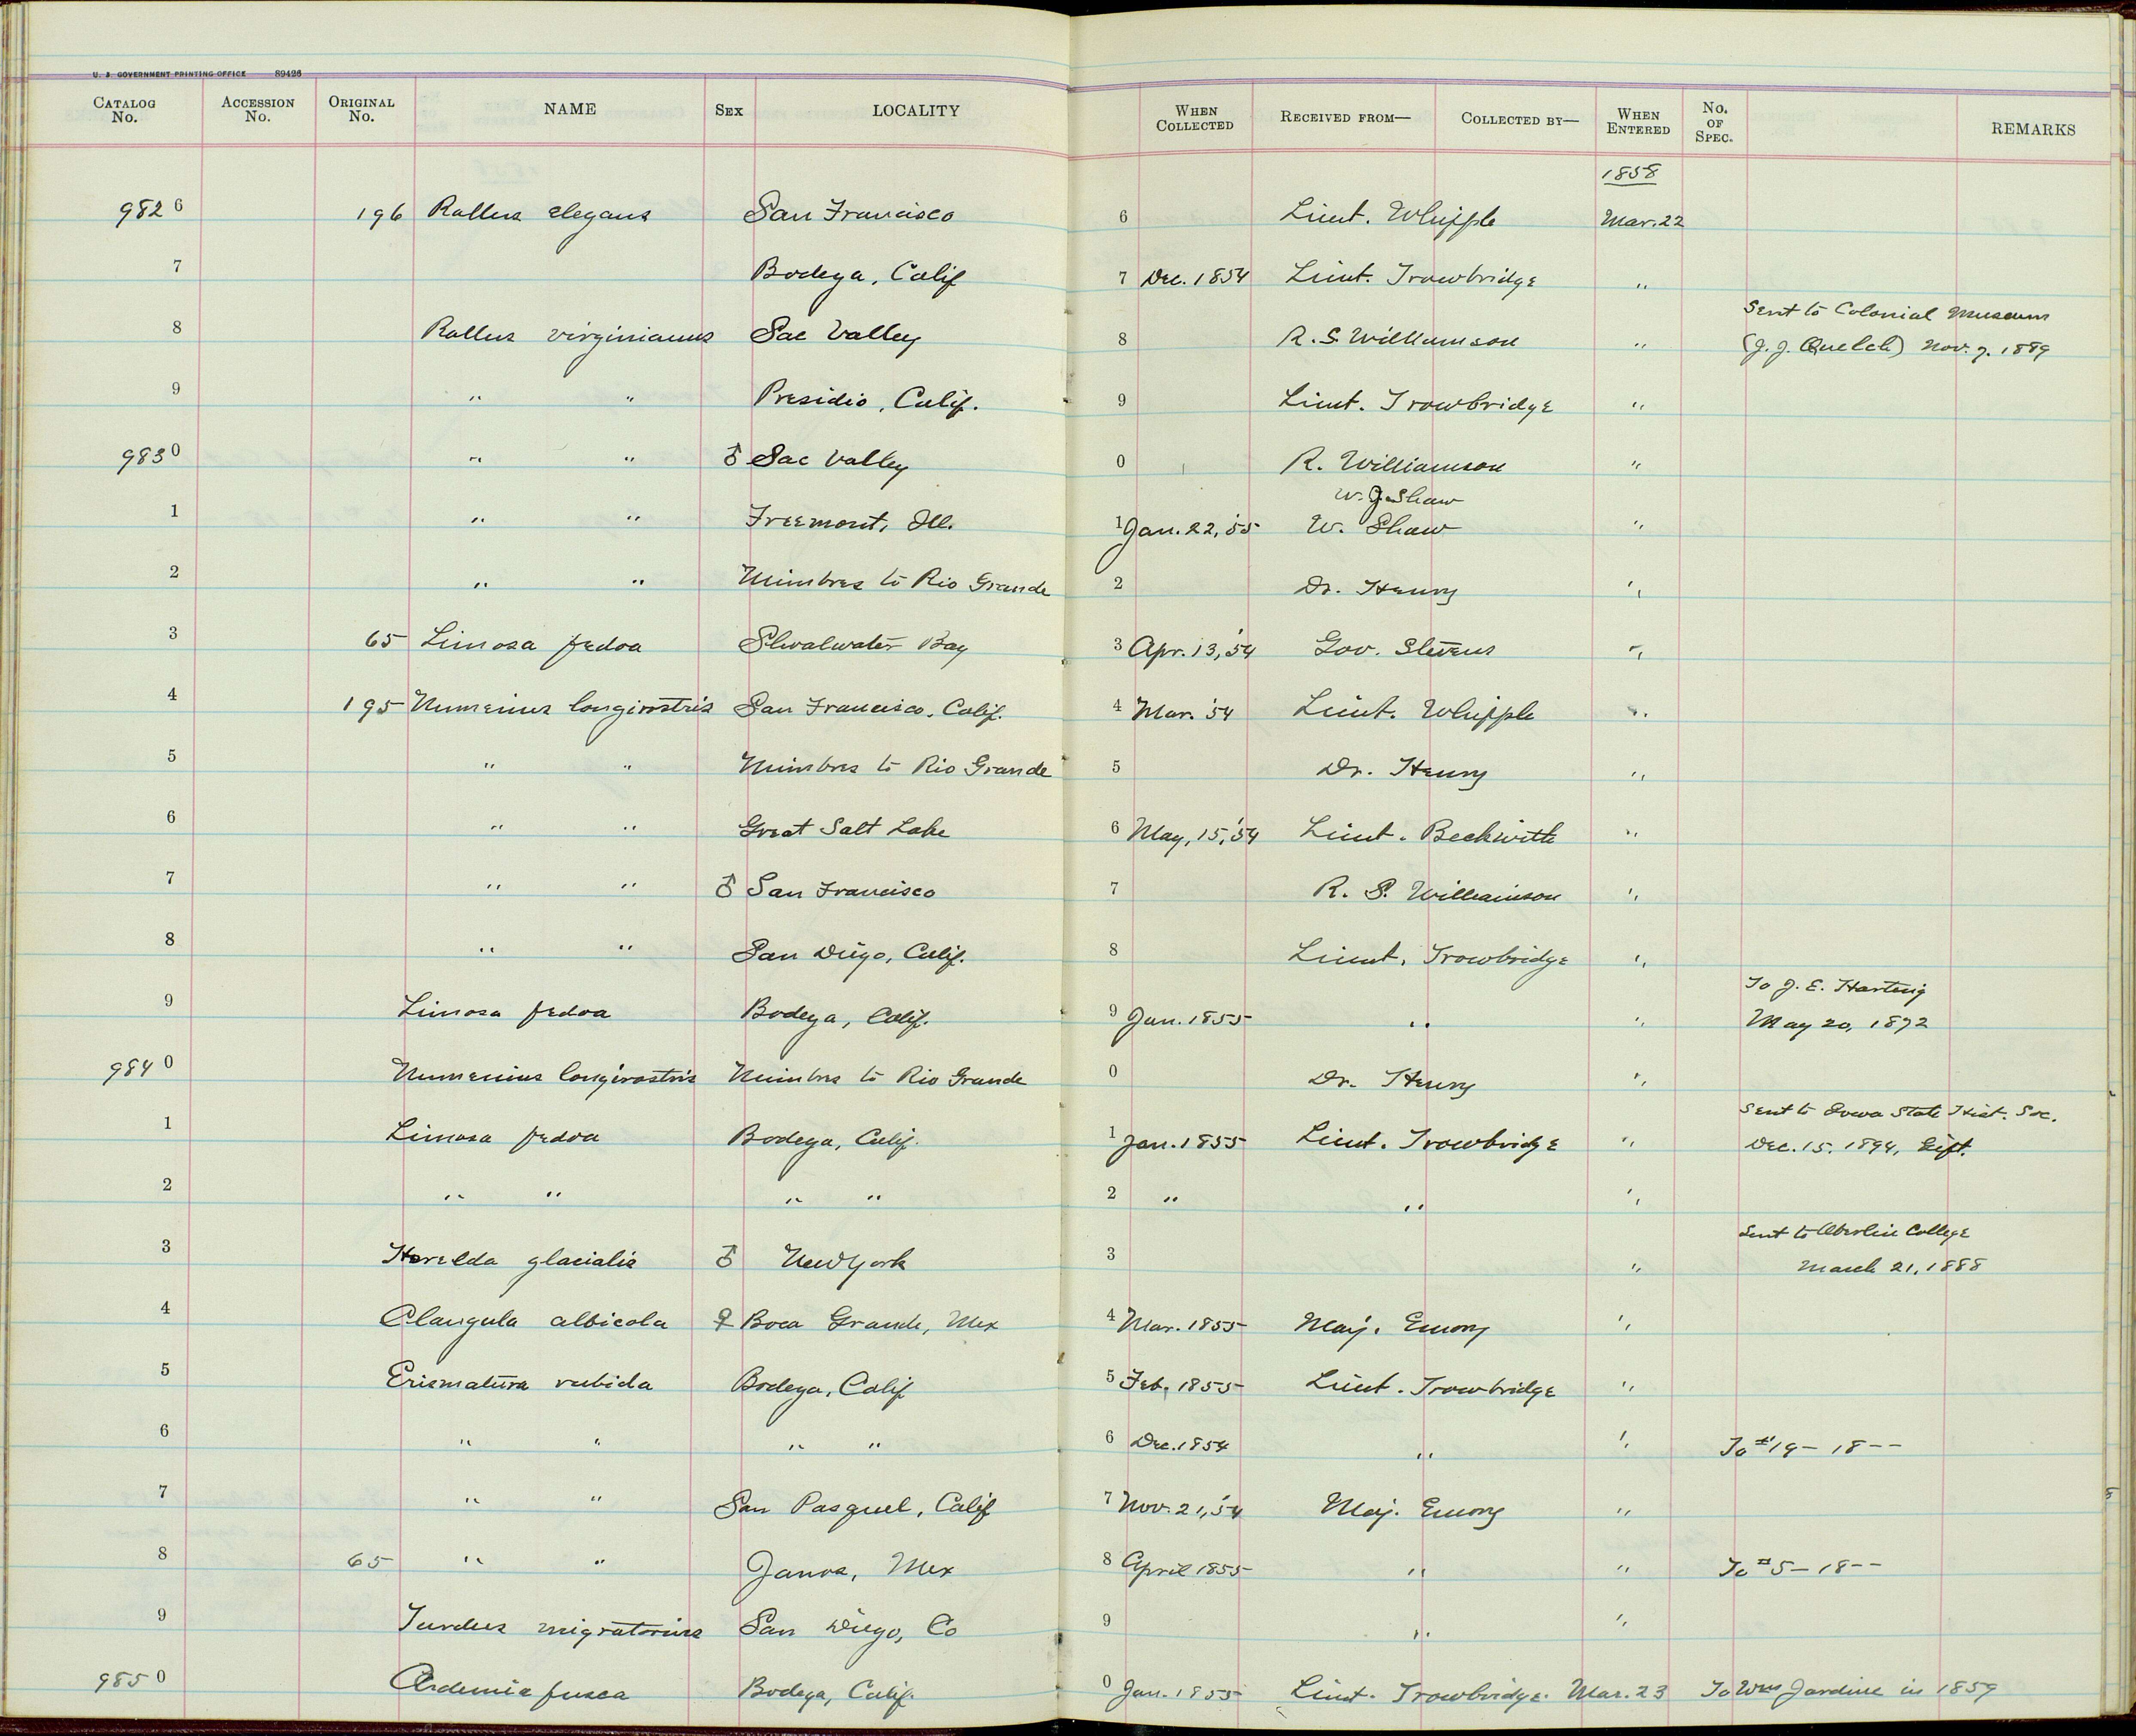 U. S. GOVERNMENT PRINTING OFFICE 89426
CATALOG No. ACCESSION No. ORIGINAL No. NAME SEX LOCALITY WHEN COLLECTED RECEIVED FROM— COLLECTED BY— WHEN ENTERED No. OF SPEC. REMARKS
1858
9826 196 Rallus elegans San Francisco 6 Lieut. Whipple Mar. 22
7 Bodega, Calif 7 Dec. 1854 Lieut. Trowbridge "
Sent to Colonial Museum
8 Rallus virginianus Sac Valley 8 R. S. Williamson " (J. J. Quelch) Nov. 7. 1889
9 " " Presidio, Calif. 9 Lieut. Trowbridge "
9830 " " ♂ Sac Valley 0 R. Williamson "
W. J. Shaw
1 " " Freemont, Ill. 1 Jan. 22, '55 W. Shaw "
2 " " Mimbres to Rio Grande 2 Dr. Henry "
3 65 Limosa fedoa Shoalwater Bay 3 Apr. 13, '54 Gov. Stevens "
4 195 Numenius longirostris San Francisco, Calif. 4 Mar. '54 Lieut. Whipple "
5 " " Mimbres to Rio Grande 5 Dr. Henry "
6 " " Great Salt Lake 6 May, 15, '54 Lieut. Beckwith "
7 " " ♂ San Francisco 7 R. S. Williamson "
8 " " San Diego, Calif. 8 Lieut. Trowbridge "
To J. E. Harting
9 Limosa fedoa Bodega, Calif. 9 Jan. 1855 " " May 20, 1872
9840 Numenius longirostris Mimbres to Rio Grande 0 Dr. Henry "
Sent to Iowa State Hist. Soc.
1 Limosa fedoa Bodega, Calif. 1 Jan. 1855 Lieut. Trowbridge " Dec. 15. 1894, Gift.
2 " " " " 2 " " "
Sent to Oberlin College
3 Harelda glacialis ♂ New York 3 " March 21, 1888
4 Clangula albicola ♀ Boca Grande, Mex 4 Mar. 1855 Maj. Emory "
5 Erismatura rubida Bodega, Calif 5 Feb, 1855 Lieut. Trowbridge "
6 " " " " 6 Dec. 1854 " " To #19 - 18--
7 " " San Pasquel, Calif 7 Nov. 21, '54 Maj. Emory "
8 65 " " Janos, Mex 8 April 1855 " " To #5 - 18--
9 Turdus migratorius San Diego, Co 9 " "
9850 fusca Bodega, Calif. 0 Jan. 1855 Lieut. Trowbridge. Mar. 23 To Wm Jardine in 1859